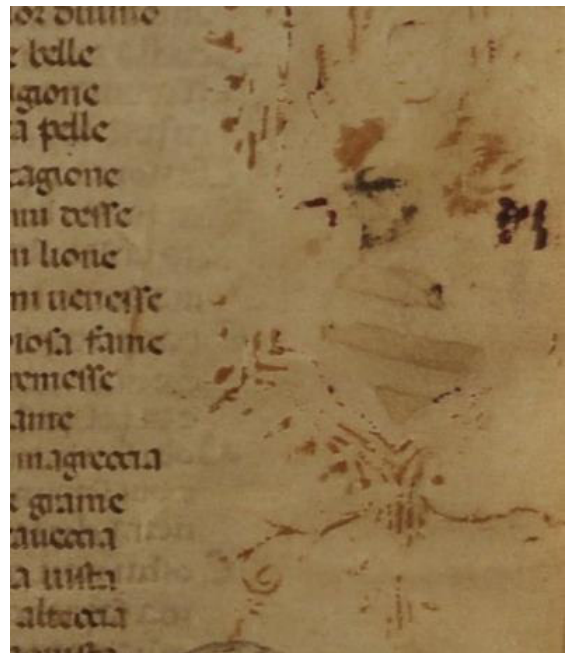 or diuino
e belle
gione
a pelle
tagione
mi desse
n lione
mi uenesse
iosa fame
remesse
ame
magreccia
e grame
aueccia
a uista
alteccia